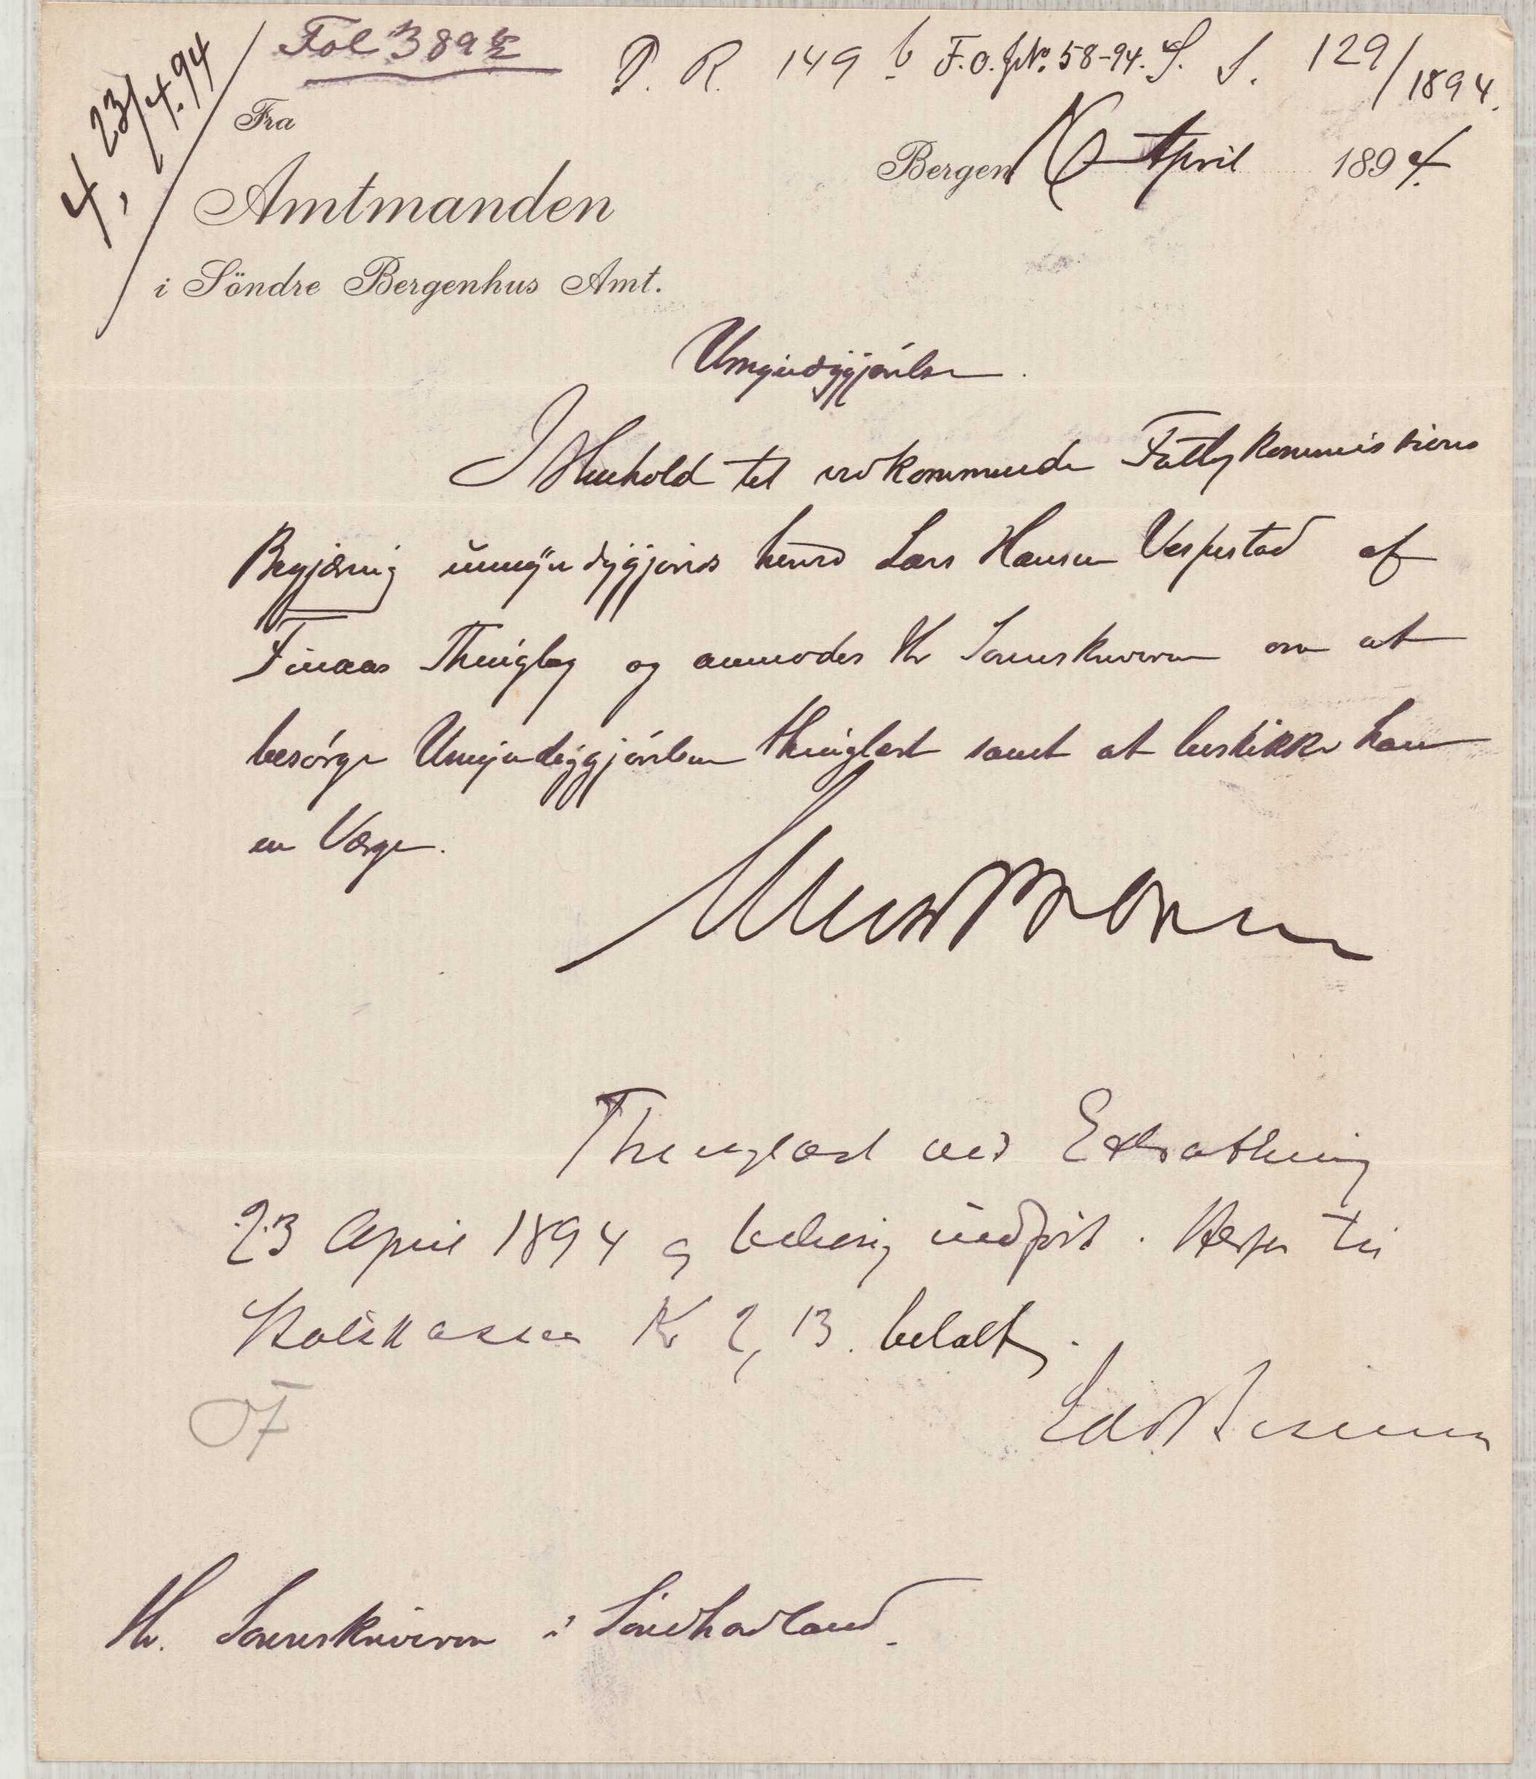 4, 23/4.94
Fol 389
D. R. 149 b F.O. JNo. 58-94. S. S. 129/1894.
Fra
Bergen April 1894.
Amtmanden
i Söndre Bergenhus Amt.
Umyndiggjørelse.
I Henhold til vedkommende Fattigkommissions
Begjæring umyndiggjøres herved Lars Hansen Vespestad af
Finaas Thinglag og anmodes Hr Sorenskriveren om at
besørge Umyndiggjørelsen thinglæst samt at beskikke ham
en Værge.
Thinglæst ved Extrathing
23 April 1894 og behørig indført. Herfor til
Statskassen Kr 2,13. betalt.
OF
Hr. Sorenskriveren i Søndhordland.